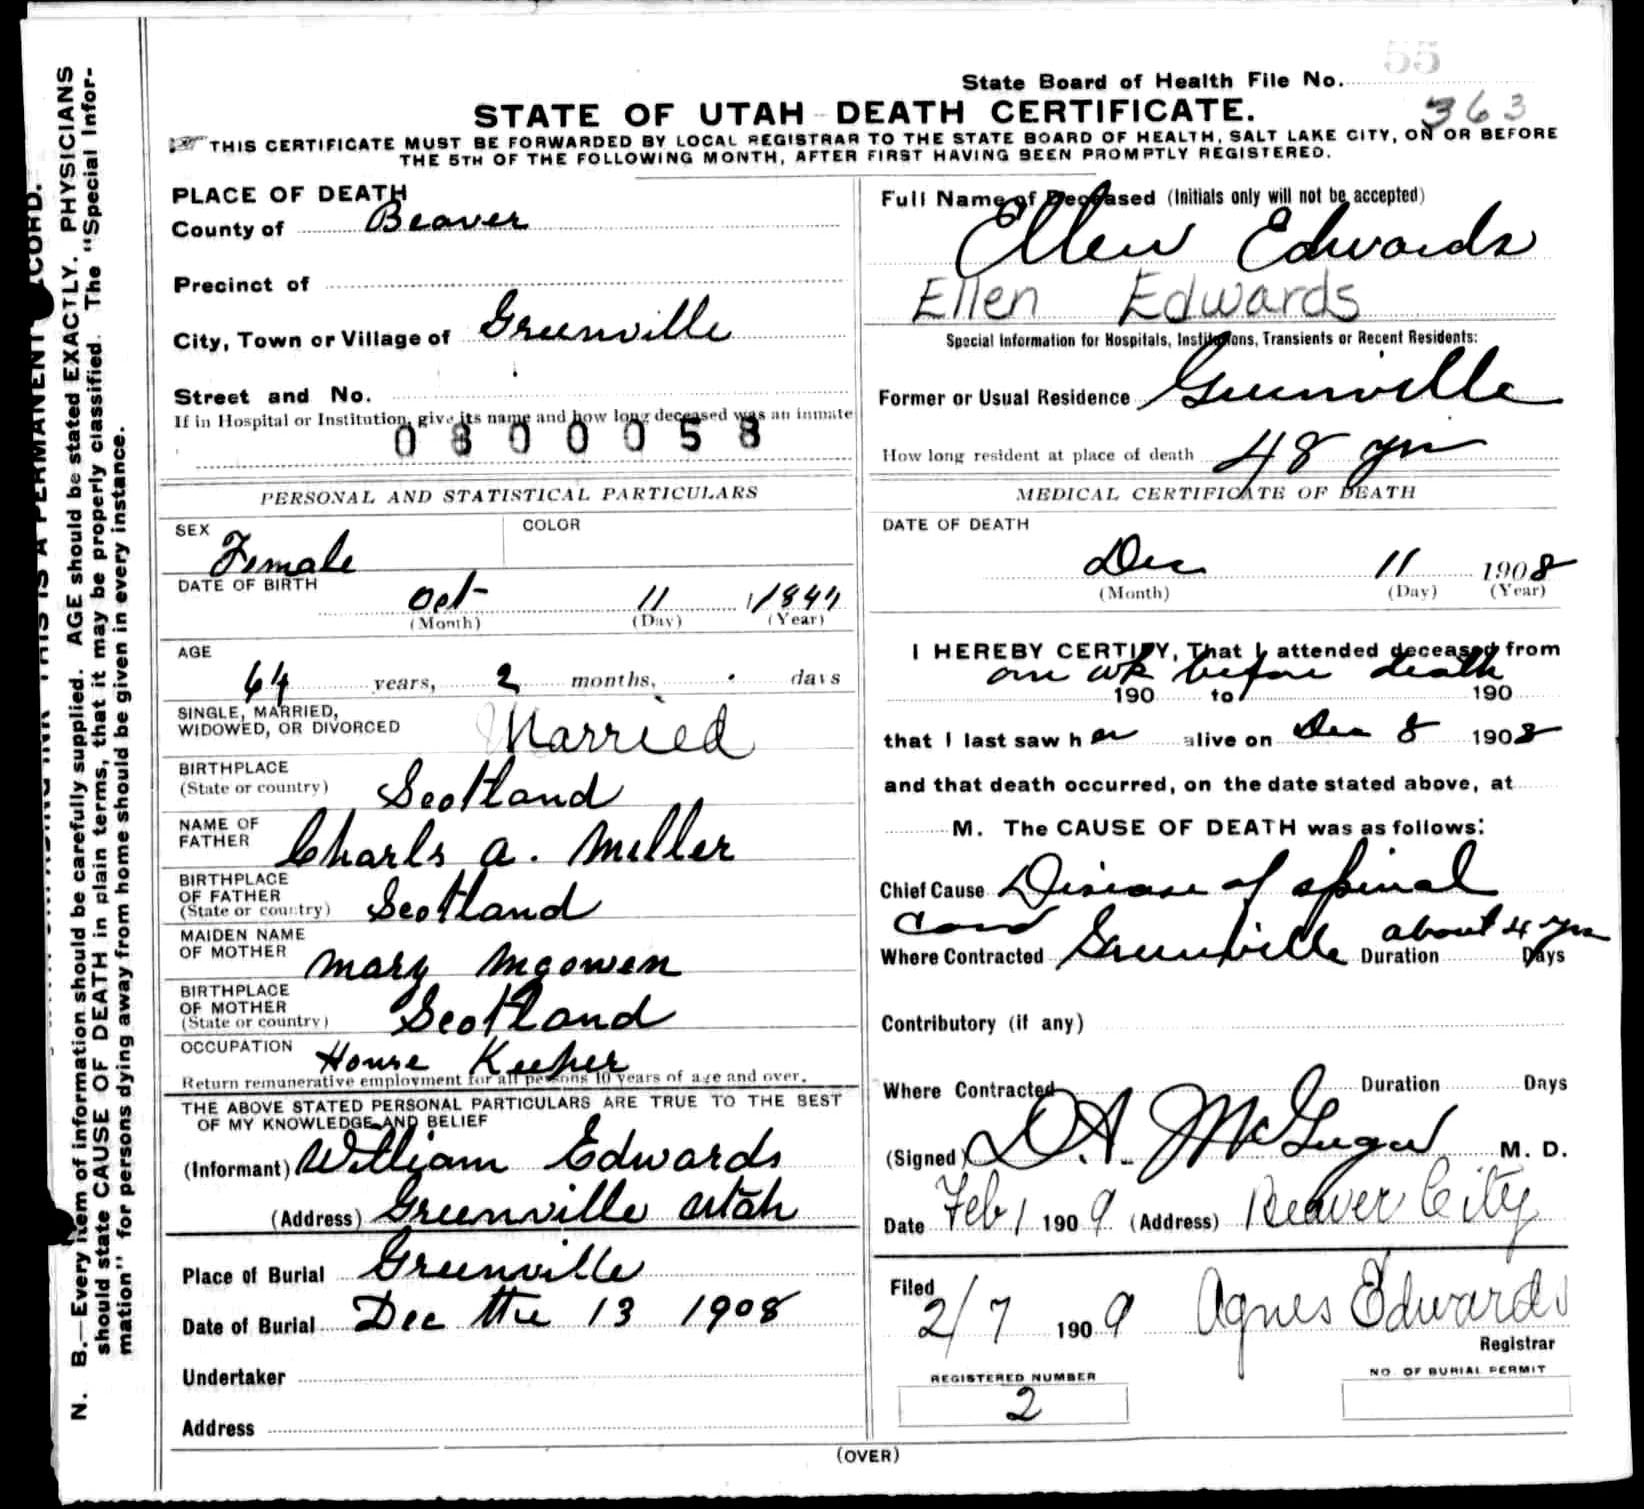 55
State Board of Health File No.
STATE OF UTAH - DEATH CERTIFICATE.
363
THIS CERTIFICATE MUST BE FORWARDED BY LOCAL REGISTRAR TO THE STATE BOARD OF HEALTH, SALT LAKE CITY, ON OR BEFORE
THE 5TH OF THE FOLLOWING MONTH, AFTER FIRST HAVING BEEN PROMPTLY REGISTERED.
PLACE OF DEATH
County of Beaver
Precinct of
City, Town or Village of Greenville
Street and No.
If in Hospital or Institution, give its name and how long deceased was an inmate
0300058
PERSONAL AND STATISTICAL PARTICULARS
SEX Female
COLOR
DATE OF BIRTH
Oct 11 1844
(Month) (Day) (Year)
AGE
64 years, 2 months, days
SINGLE, MARRIED,
WIDOWED, OR DIVORCED Married
BIRTHPLACE
(State or country) Scotland
NAME OF
FATHER Charls A. Miller
BIRTHPLACE
OF FATHER
(State or country) Scotland
MAIDEN NAME
OF MOTHER Mary Mgowen
BIRTHPLACE
OF MOTHER
(State or country) Scotland
OCCUPATION House Keeper
Return remunerative employment for all persons 10 years of age and over.
THE ABOVE STATED PERSONAL PARTICULARS ARE TRUE TO THE BEST
OF MY KNOWLEDGE AND BELIEF
(Informant) William Edwards
(Address) Greenville Utah
Place of Burial Greenville
Date of Burial Dec the 13 1908
Undertaker
Address
Full Name of Deceased (Initials only will not be accepted)
Ellen Edwards
Ellen Edwards
Special Information for Hospitals, Institutions, Transients or Recent Residents:
Former or Usual Residence Greenville
How long resident at place of death 48 yrs
MEDICAL CERTIFICATE OF DEATH
DATE OF DEATH
Dec 11 1908
(Month) (Day) (Year)
I HEREBY CERTIFY, That I attended deceased from
one wk before death
190 to 190
that I last saw her alive on Dec 8 1908
and that death occurred, on the date stated above, at
M. The CAUSE OF DEATH was as follows:
Chief Cause Disease of spinal
Cord
Where Contracted Greenville Duration about 4 yrs Days
Contributory (if any)
Where Contracted Duration Days
(Signed) D.A. McGregor M. D.
Date Feb 1 1909 (Address) Beaver City
Filed
2/7 1909 Agnes Edwards
Registrar
REGISTERED NUMBER
2
NO. OF BURIAL PERMIT
(OVER)
N. B.—Every item of information should be carefully supplied. AGE should be stated EXACTLY. PHYSICIANS
should state CAUSE OF DEATH in plain terms, that it may be properly classified. The "Special Infor-
mation" for persons dying away from home should be given in every instance.
THIS IS A PERMANENT RECORD.